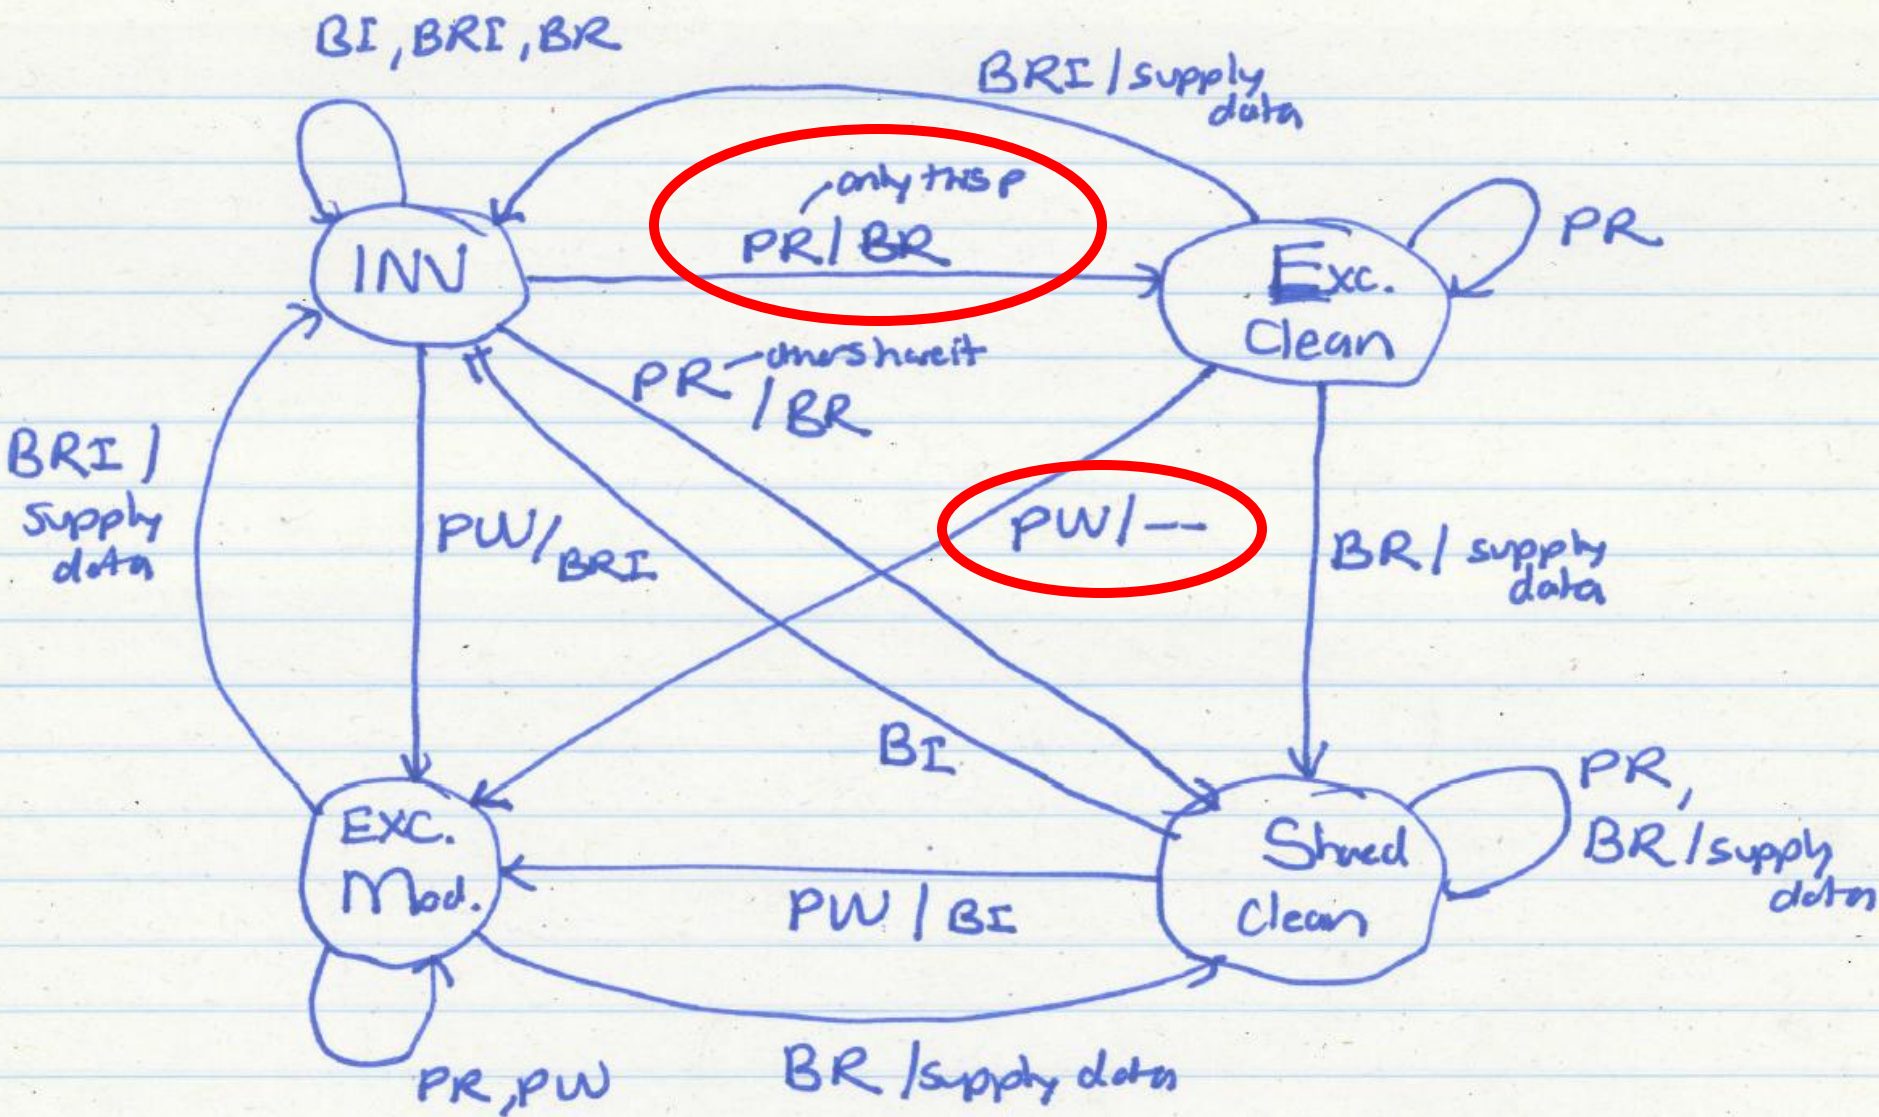 BI, BRI, BR
BRI / supply
data
only this p
PR / BR
INV
Exc.
Clean
PR
PR others have it
/ BR
BRI /
supply
data
PW /
BRI
PW / --
BR / supply
data
BI
Exc.
Mod.
PW / BI
Shared
Clean
PR,
BR / supply
data
PR, PW
BR / supply data